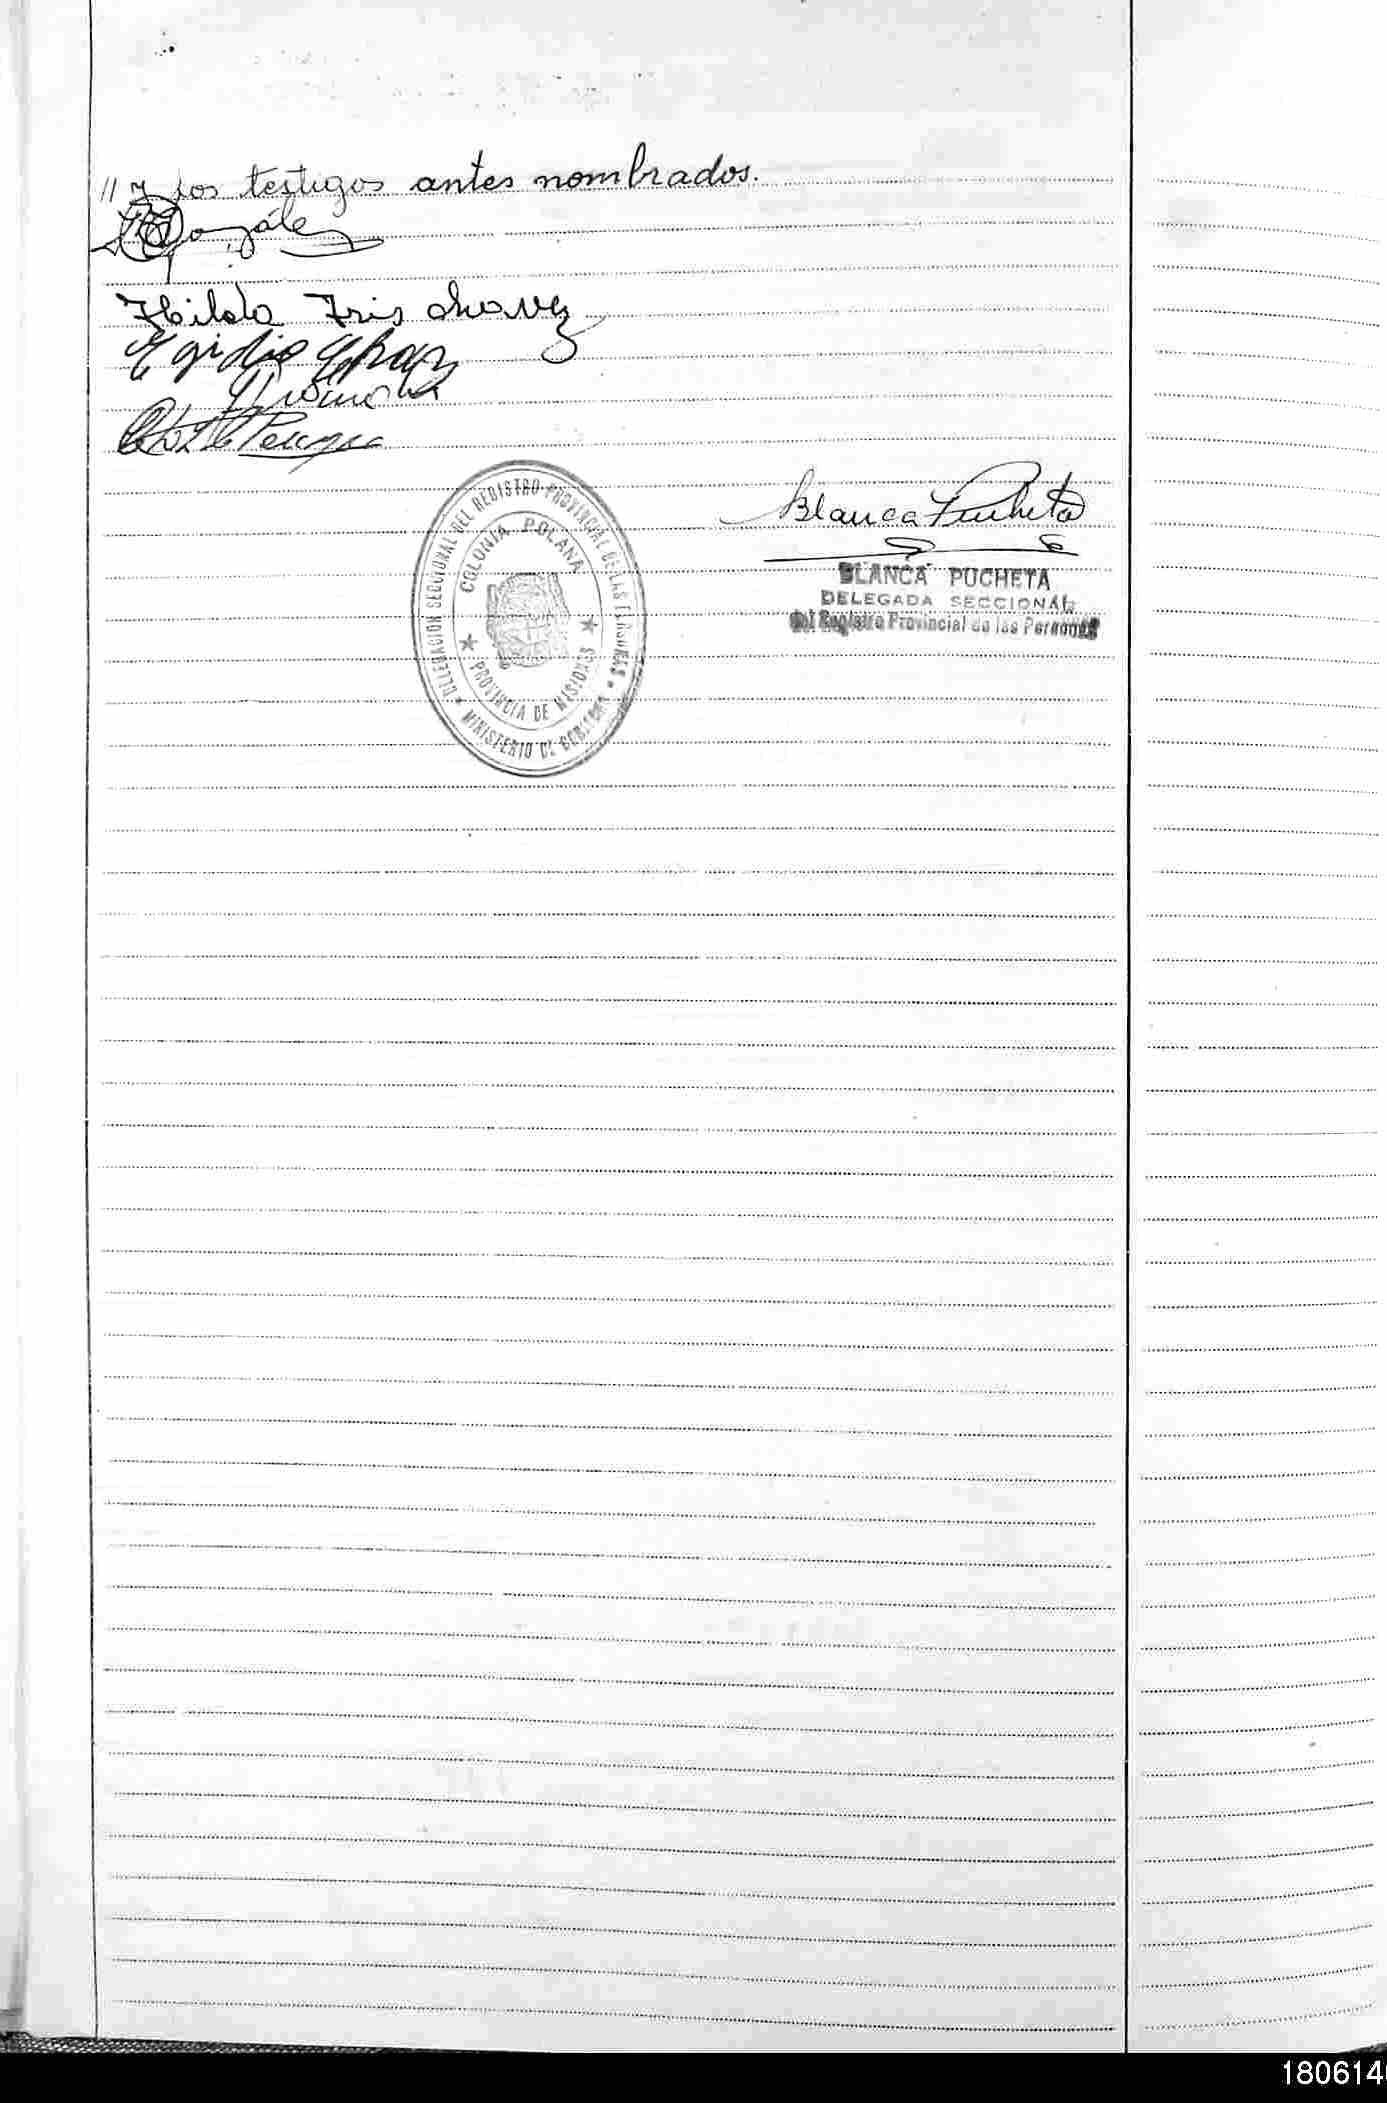 // y los testigos antes nombrados.
González
Hilda Iris Chavez
Egidio
Blanca Pucheta
BLANCA PUCHETA
DELEGADA SECCIONAL
del Registro Provincial de las Personas
DELEGACION SECCIONAL DEL REGISTRO PROVINCIAL DE LAS PERSONAS
COLONIA POLANA
PROVINCIA DE MISIONES
MINISTERIO DE GOBIERNO
180614